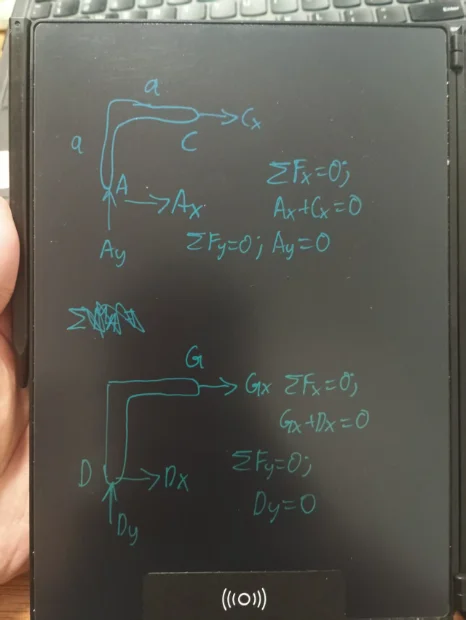 a
a
Cx
C
A
Ax
Ay
ΣFx=0;
Ax+Cx=0
ΣFy=0; Ay=0
Σ
G
Gx ΣFx=0;
Gx+Dx=0
D
Dx
Dy
ΣFy=0;
Dy=0